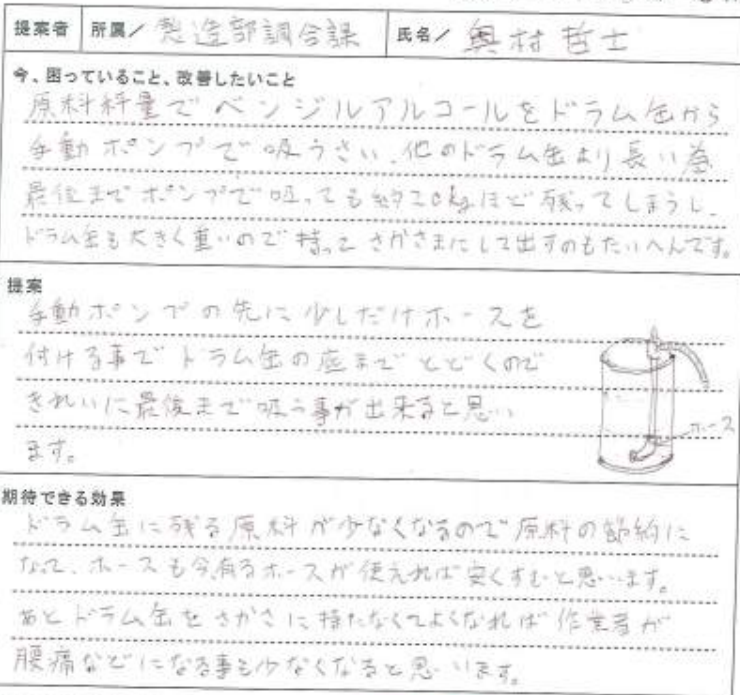 提案者 所属/ 製造部調合課 氏名/ 奥村哲士
今、困っていること、改善したいこと
原料秤量でベンジルアルコールをドラム缶から
手動ポンプで吸うさい、他のドラム缶より長い為
最後までポンプで吸っても約20kgほど残ってしまうし、
ドラム缶も大きく重いので持ってさかさまにして出すのもたいへんです。
提案
手動ポンプの先に少しだけホースを
付ける事でドラム缶の底までとどくので
きれいに最後まで吸う事が出来ると思い
ます。
ホース
期待できる効果
ドラム缶に残る原料が少なくなるので原料の節約に
なって、ホースも今有るホースが使えれば安くすむと思います。
あとドラム缶をさかさに持たなくてよくなれば作業者が
腰痛などになる事も少なくなると思います。